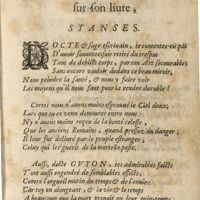 sur son liure,
STANSES.
DOCTE & sage escriuain, te contentes-tu pas
D'auoir souuentesfois retiré du trespas
Tant de debiles corps, par ton Art secourable,
Sans encore vouloir dedans ce beau miroir,
Nous peindre la santé, & nous y faire voir
Les moyens qu'il nous faut pour la rendre durable!
Certes nous n'auons moins esprouué le Ciel doux,
Lors que tu es venu demeurer entre nous:
Ny n'auons moins reçeu de la bonté celeste,
Que les anciens Romains, quand pressez du danger,
Il leur fut deliuré par le peuple estranger,
Celuy qui les guerit de la mortelle peste.
Aussi, docte GVYON, tes admirables faicts
T'ont aussi engendré de semblables effects,
Contre l'orgueil mutin du temps & de l'enuie:
Car toy en donnant, & la vie & le temps
A beaucoup que la mort tenoit en leur